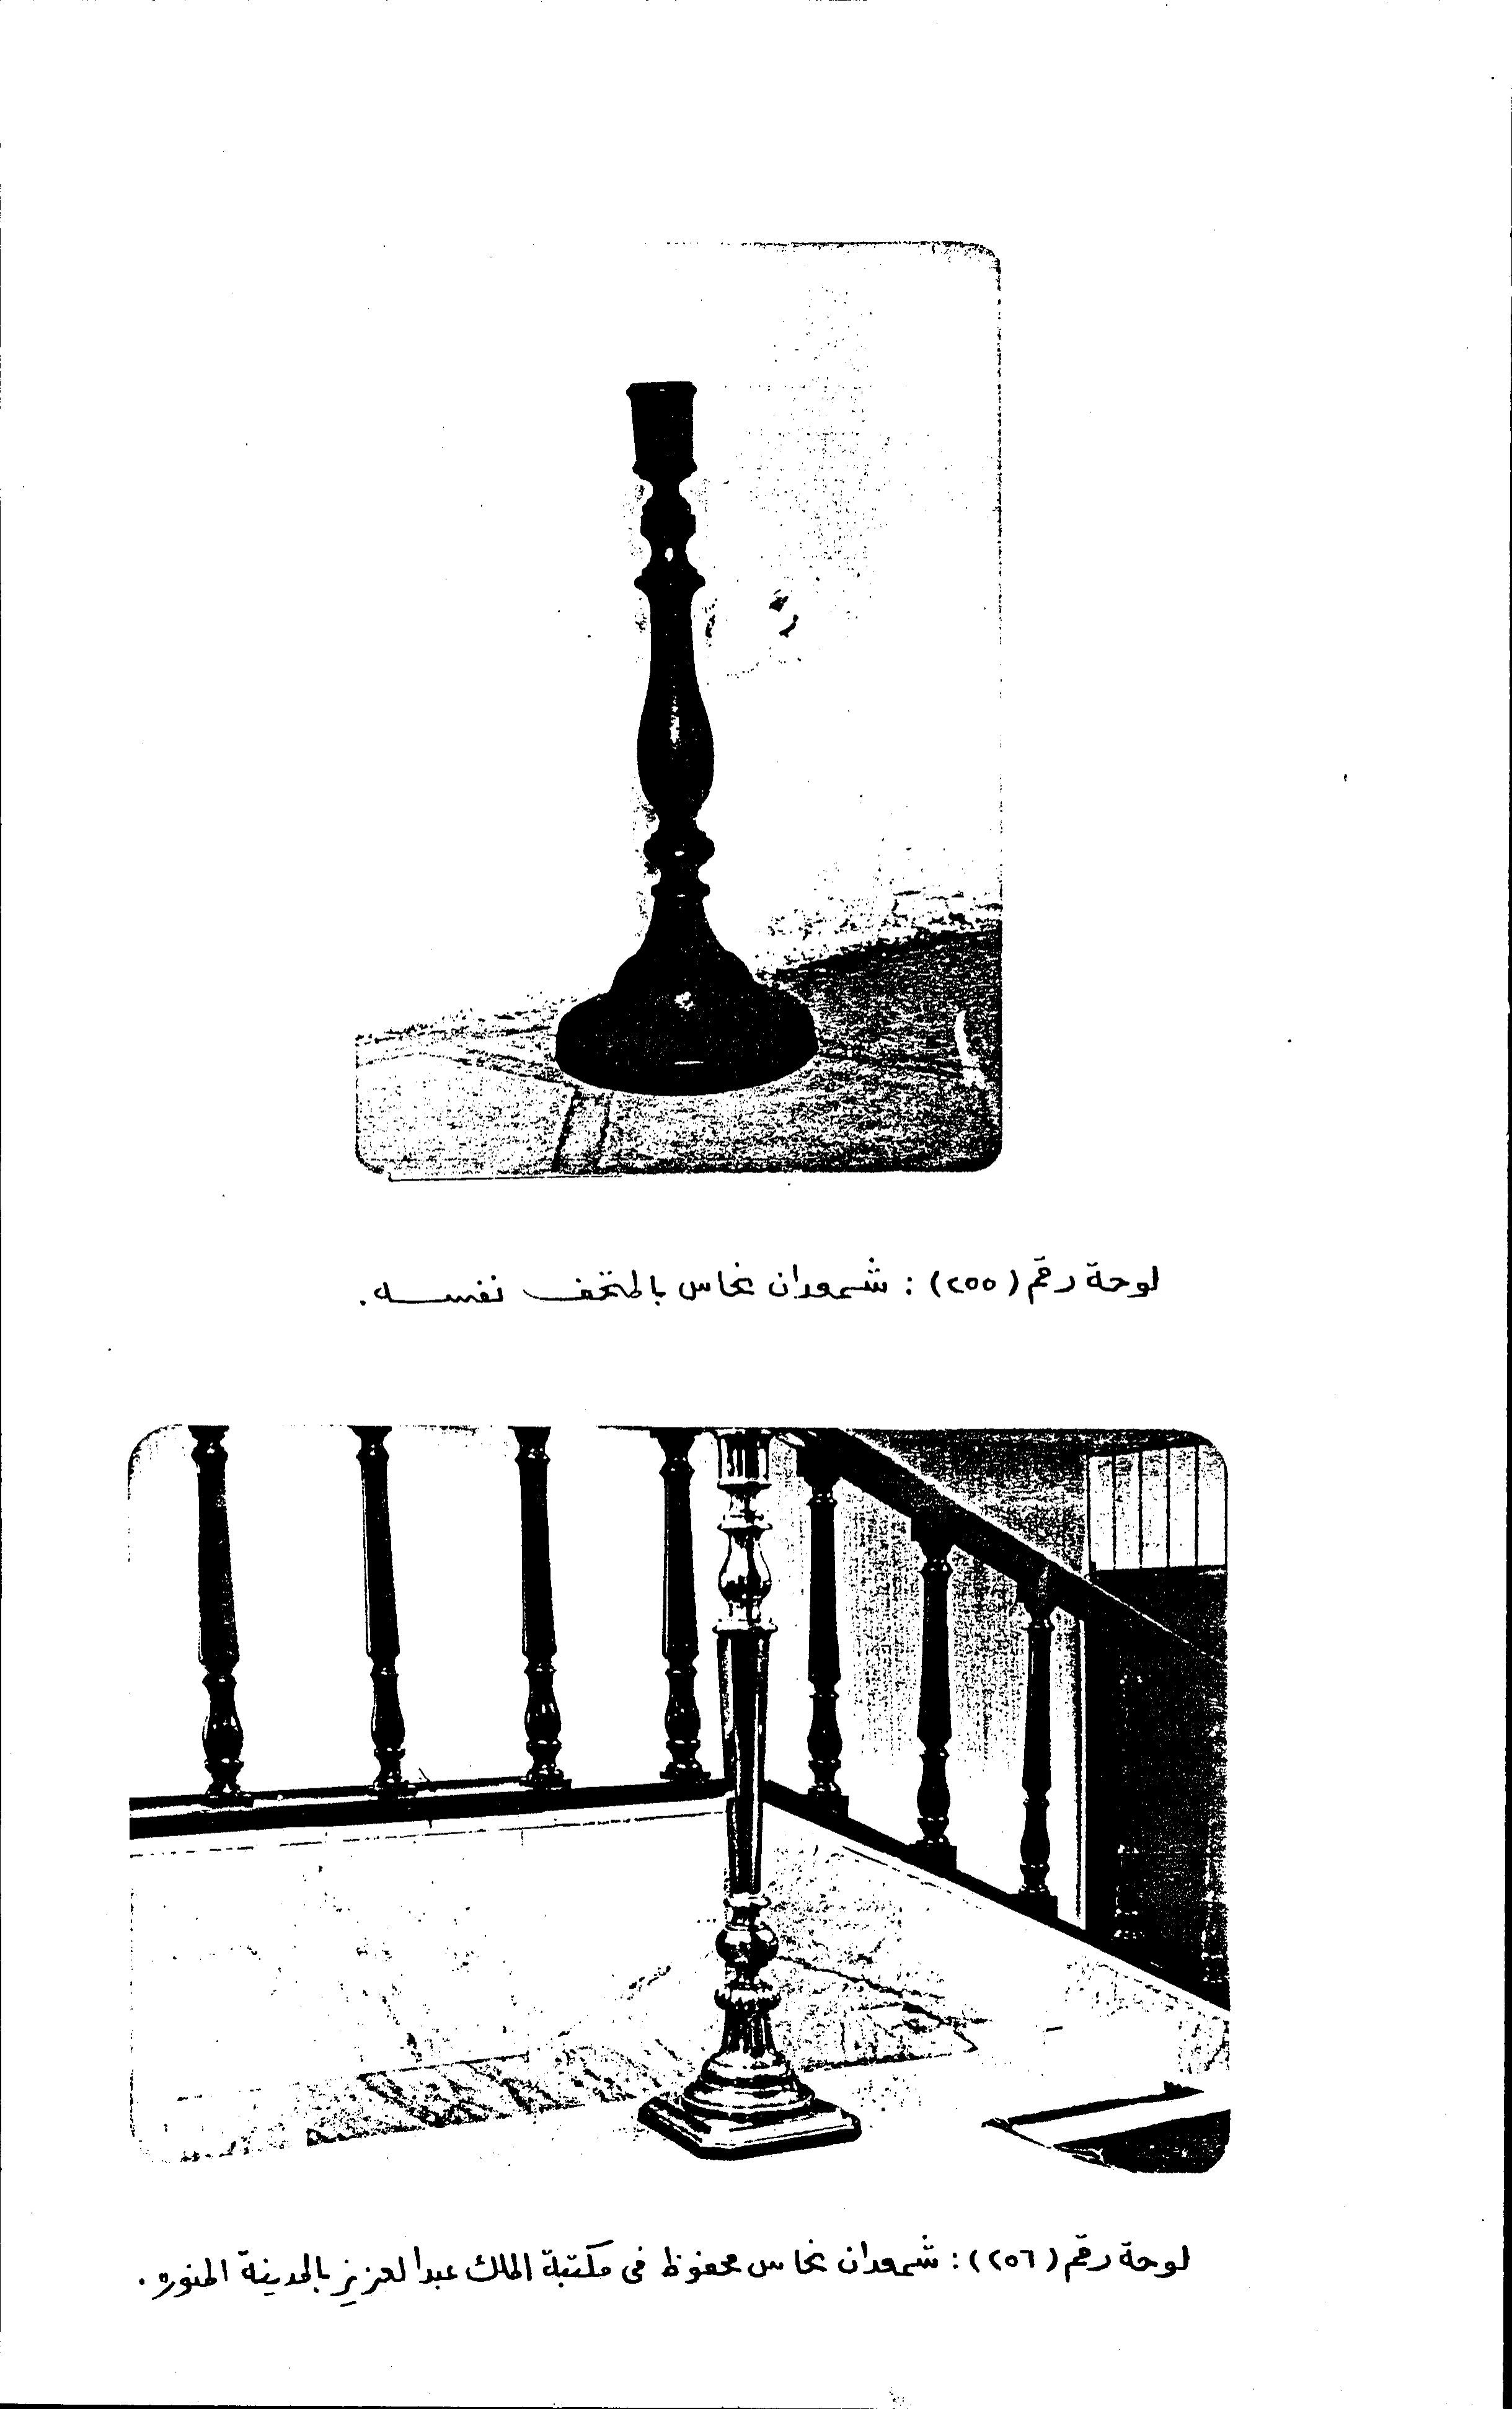 لوحة رقم (٢٥٥) : شمعدان نحاس بالمتحف نفسه .
لوحة رقم (٢٥٦) : شمعدان نحاس محفوظ فى مكتبة الملك عبد العزيز بالمدينة المنورة .